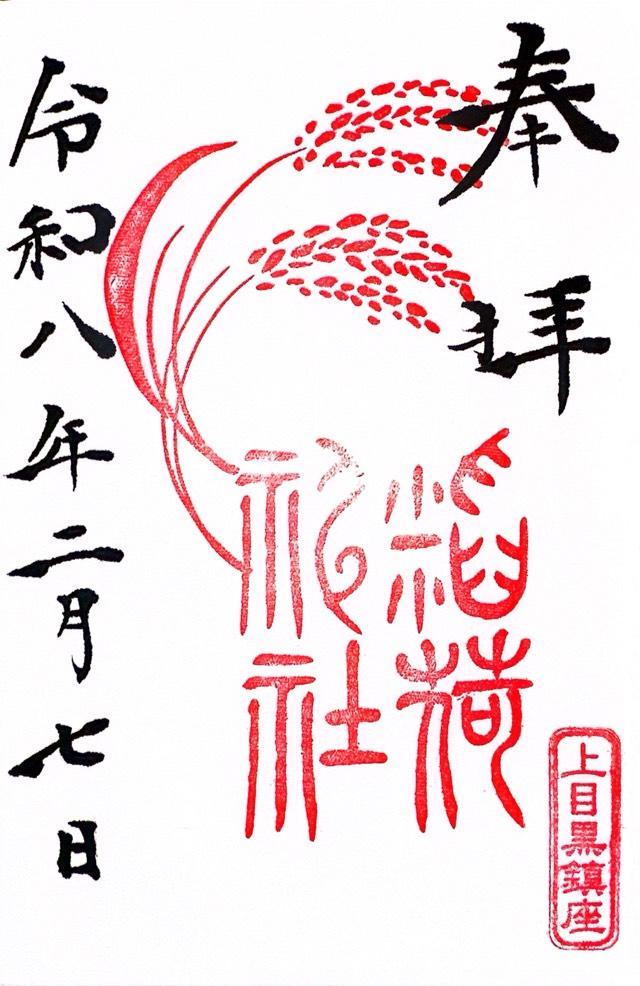 奉拝
上目黒鎮座
稲荷
神社
令和八年二月七日